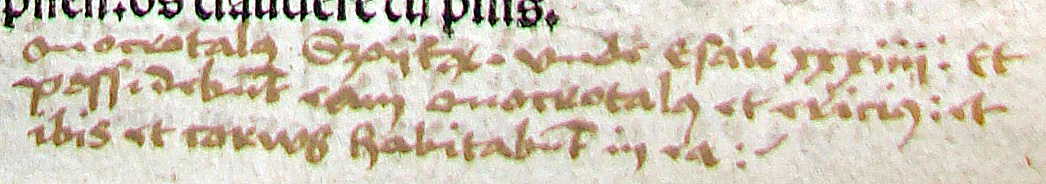 os claudere cū
onocrotalꝰ . vnde Esaie xxxiiii : et
possidebūt eam onocrotalꝰ et ericiꝰ : et
ibis et corvus habitabūt in ea :